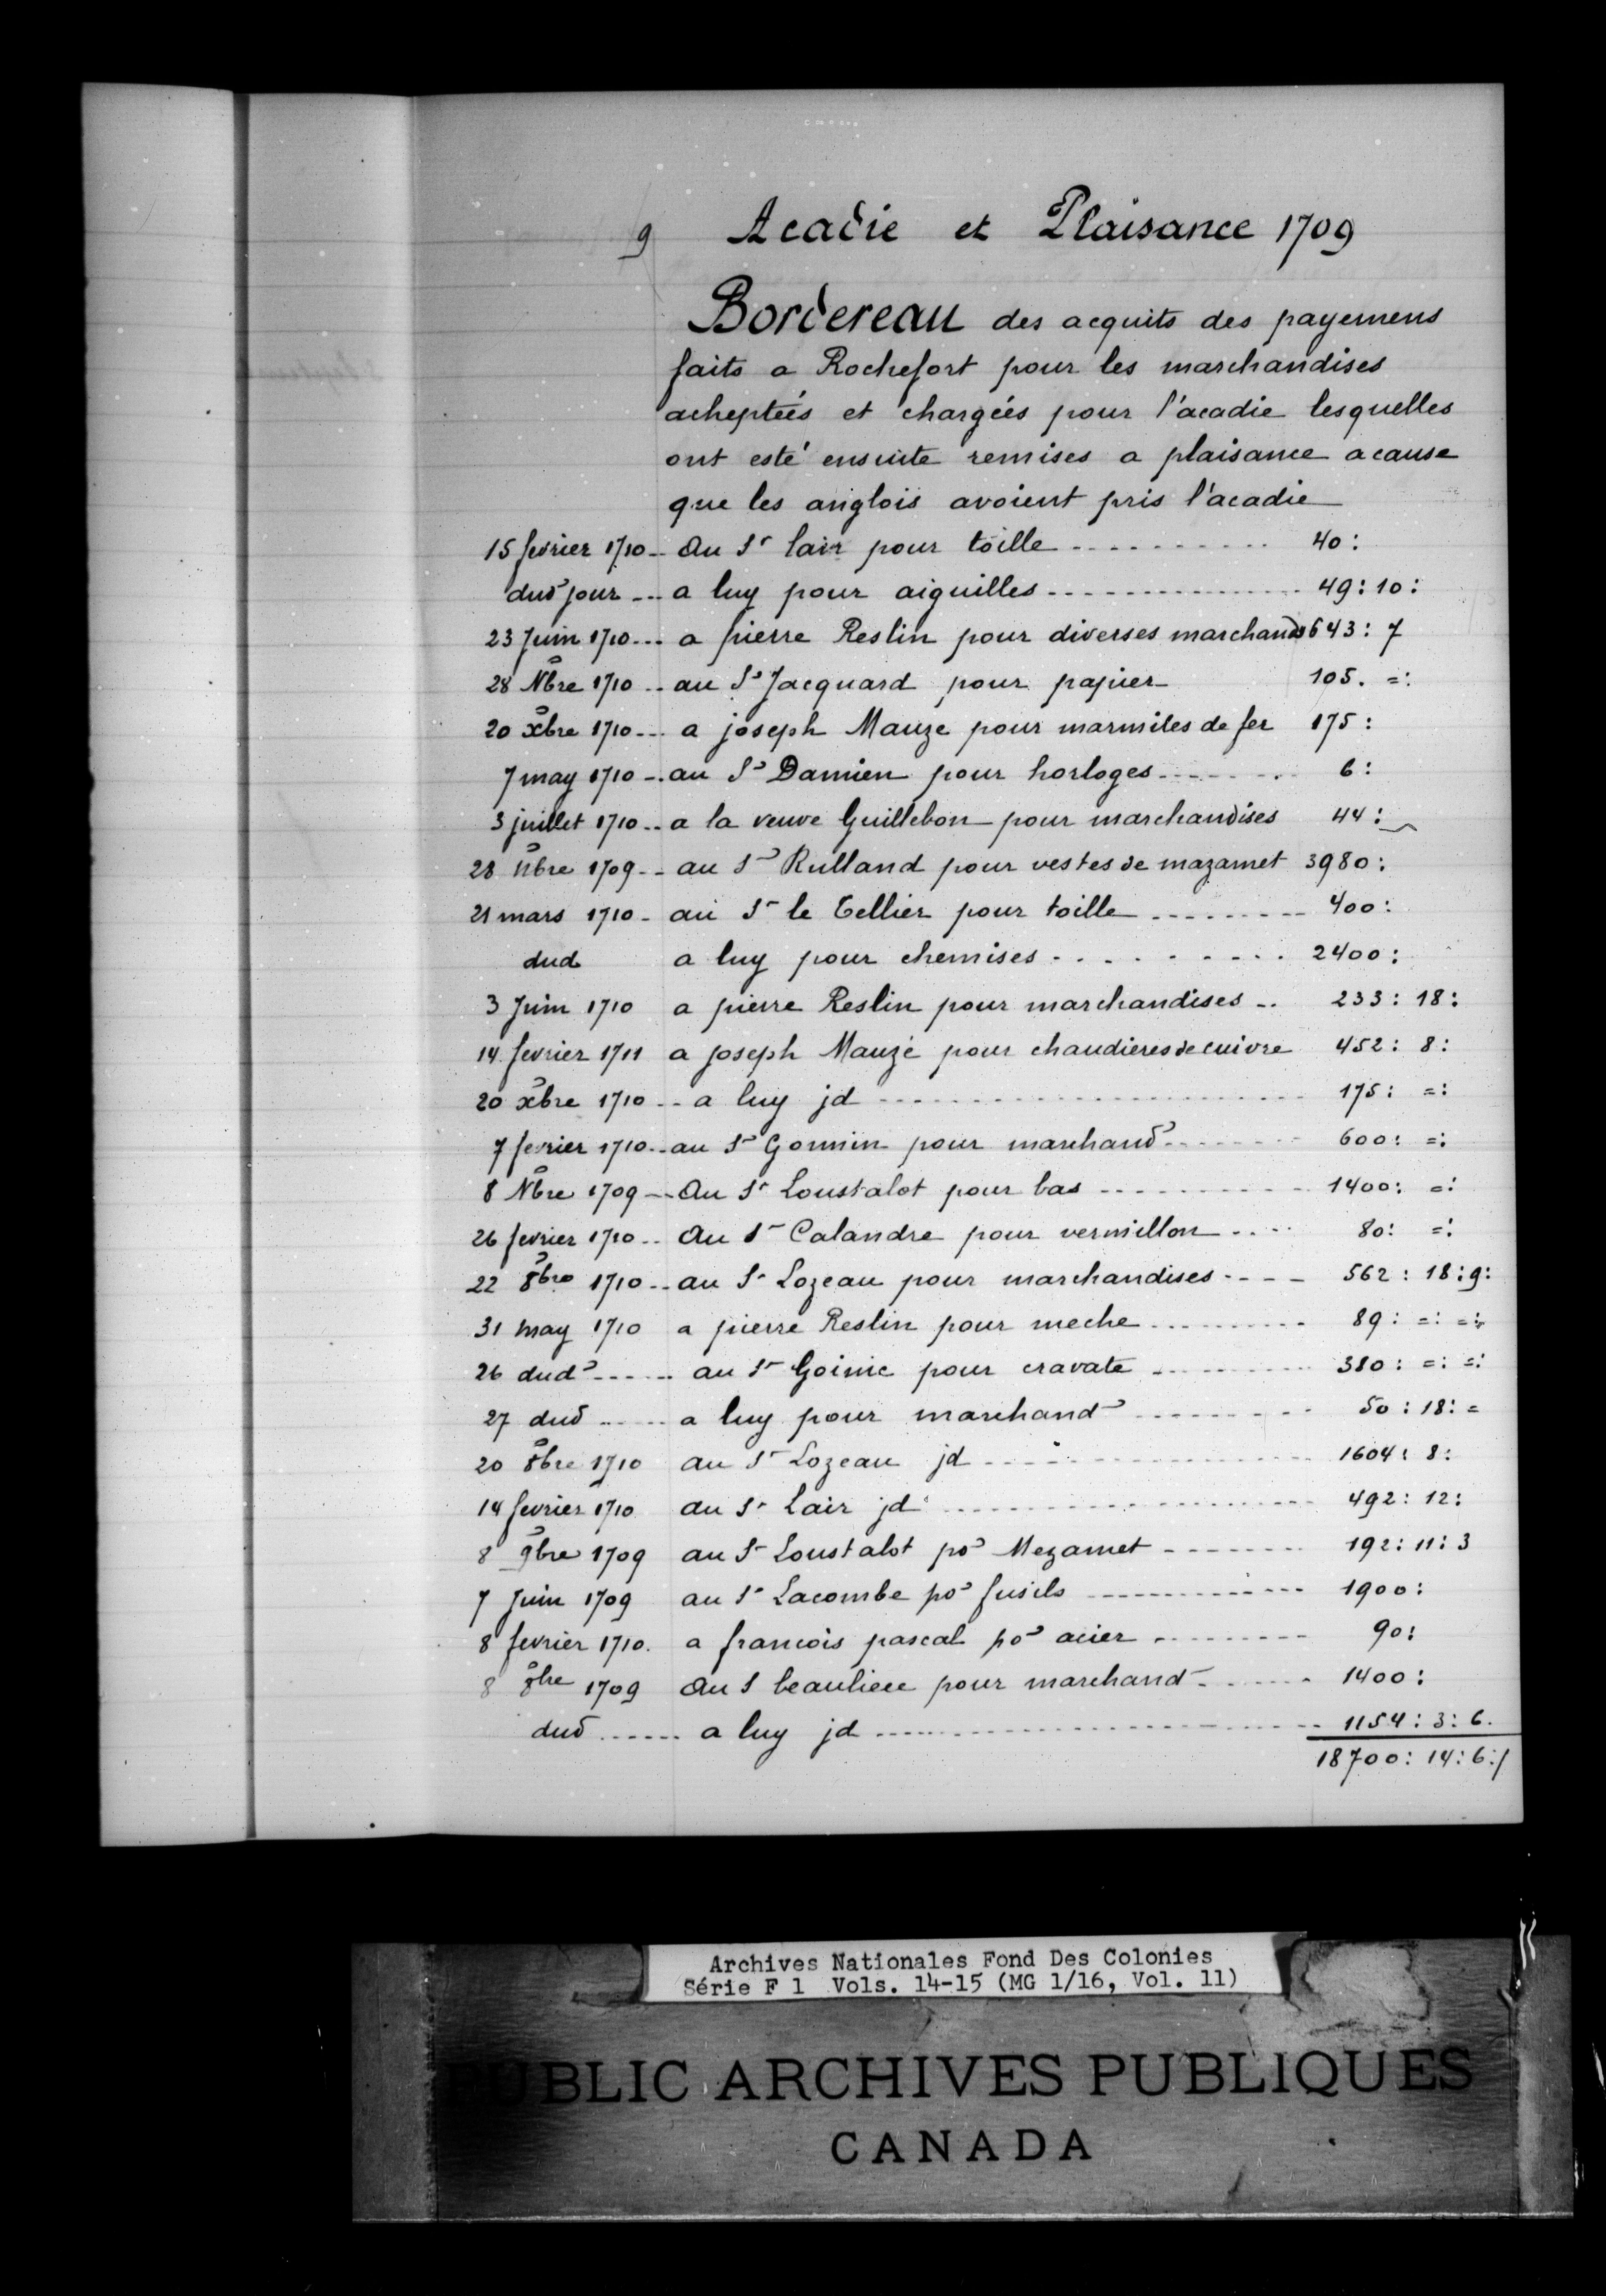 9 Acadie et Plaisance 1709
Bordereau des acquits des payemens
faits a Rochefort pour les marchandises
acheptéés et chargéés pour l'acadie lesquelles
ont esté ensuite remises a plaisance acause
que les anglois avoient pris l'acadie
15 fevrier 1710 Au Sr lair pour toille 40:
dud jour a luy pour aiguilles 49:10:
23 Juin 1710 a pierre Reslin pour diverses marchands 643:7
28 Nbre 1710 au Sr Jacquard pour papier 105. =:
20 xbre 1710 a joseph Mauze pour marmites de fer 175:
7 may 1710 au Sr Damien pour horloges 6:
3 juillet 1710 a la veuve Guillebon pour marchandises 44:
28 Nbre 1709 au Sr Rulland pour vestes de mazamet 3980:
21 mars 1710 au Sr le Tellier pour toille 400:
dud a luy pour chemises 2400:
3 Juin 1710 a pierre Reslin pour marchandises 233:18:
14 fevrier 1711 a joseph Mauzé pour chaudieres de cuivre 452:8:
20 xbre 1710 a luy jd 175: =:
7 fevrier 1710 au Sr Gonnin pour marchand 600: =:
8 Nbre 1709 Au Sr Loustalot pour bas 1400: =:
26 fevrier 1710 Au Sr Calandre pour vermillon 80: =:
22 8bre 1710 au Sr Lozeau pour marchandises 562:18:9:
31 may 1710 a pierre Reslin pour meche 89: =: =:
26 dud au Sr Goinie pour cravate 380: =: =:
27 dud a luy pour marchand 50:18: =
20 8bre 1710 au Sr Lozeau jd 1604:8:
14 fevrier 1710 au Sr Lair jd 492:12:
8 9bre 1709 au Sr Loustalot po Mezamet 192:11:3
7 Juin 1709 au Sr Lacombe po fusils 1900:
8 fevrier 1710. a francois pascal po acier 90:
8 8bre 1709 Au S beaulieu pour marchand 1400:
dud a luy jd 1154:3:6.
18700:14:6:/
Archives Nationales Fond Des Colonies
Série F 1 Vols. 14-15 (MG 1/16, Vol. 11)
PUBLIC ARCHIVES PUBLIQUES
CANADA